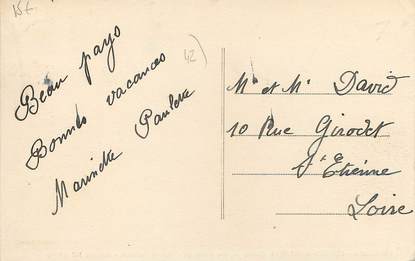 15€
Beau pays
Bonnes vacances
Marinette Paulette
42
Mr et Me David
10 Rue Girodet
St Etienne
Loire